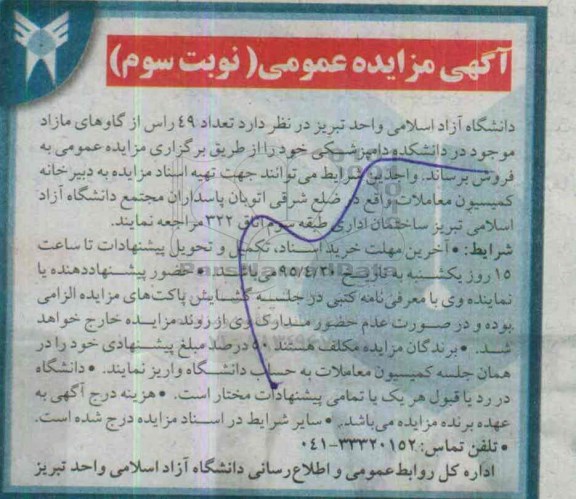 آگهی مزایده عمومی( نوبت سوم)
دانشگاه آزاد اسلامی واحد تبریز در نظر دارد تعداد ٤٩ راس از گاوهای مازاد
موجود در دانشکده دامپزشکی خود را از طریق برگزاری مزایده عمومی به
فروش برساند. واجدین شرایط می‌توانند جهت تهیه اسناد مزایده به دبیرخانه
کمیسیون معاملات واقع در ضلع شرقی اتوبان پاسداران مجتمع دانشگاه آزاد
اسلامی تبریز ساختمان اداری طبقه سوم اتاق ۳۲۲ مراجعه نمایند.
شرایط: • آخرین مهلت خرید اسناد، تکمیل و تحویل پیشنهادات تا ساعت
۱۵ روز یکشنبه به تاریخ ۹۵/٤/۲۰ می‌باشد. • حضور پیشنهاددهنده یا
نماینده وی با معرفی نامه کتبی در جلسه گشایش پاکت‌های مزایده الزامی
بوده و در صورت عدم حضور مدارک وی از روند مزایده خارج خواهد
شد. • برندگان مزایده مکلف هستند ۵۰ درصد مبلغ پیشنهادی خود را در
همان جلسه کمیسیون معاملات به حساب دانشگاه واریز نمایند. • دانشگاه
در رد یا قبول هر یک یا تمامی پیشنهادات مختار است. • هزینه درج آگهی به
عهده برنده مزایده می‌باشد. • سایر شرایط در اسناد مزایده درج شده است.
• تلفن تماس: ۳۳۳۲۰۱۵۲-۰٤۱
اداره کل روابط عمومی و اطلاع رسانی دانشگاه آزاد اسلامی واحد تبریز